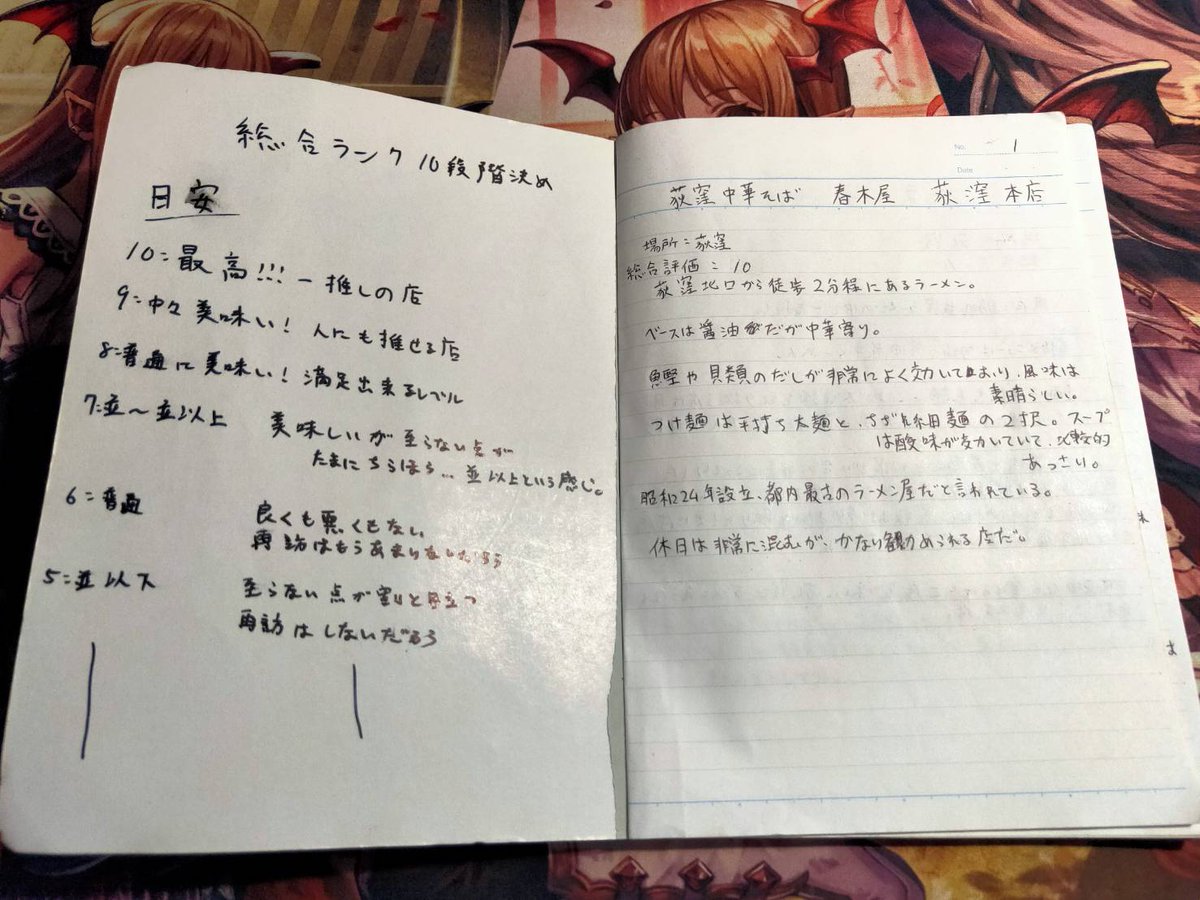 総合ランク 10段階決め
目安
10=最高!!! 一推しの店
9=中々美味い! 人にも推せる店
8=普通に美味い! 満足出来るレベル
7=並～並以上 美味しいが至らない点が
たまにちらほら…並以上という感じ。
6=普通 良くも悪くもない
再訪はもうあまりないだろう
5=並以下 至らない点が割りと目立つ
再訪はしないだろう
No. 1
Date
荻窪中華そば 春木屋 荻窪本店
場所=荻窪
総合評価=10
荻窪北口から徒歩2分程にあるラーメン。
ベースは醤油だが中華寄り。
魚堅や貝類のだしが非常によく効いており、風味は
素晴らしい。
つけ麺は手打ち太麺と、ちぢれ細麺の2択。スープ
は酸味が効いていて、比較的
あっさり。
昭和24年設立、都内最古のラーメン屋だと言われている。
休日は非常に混むが、かなり勧められる店だ。